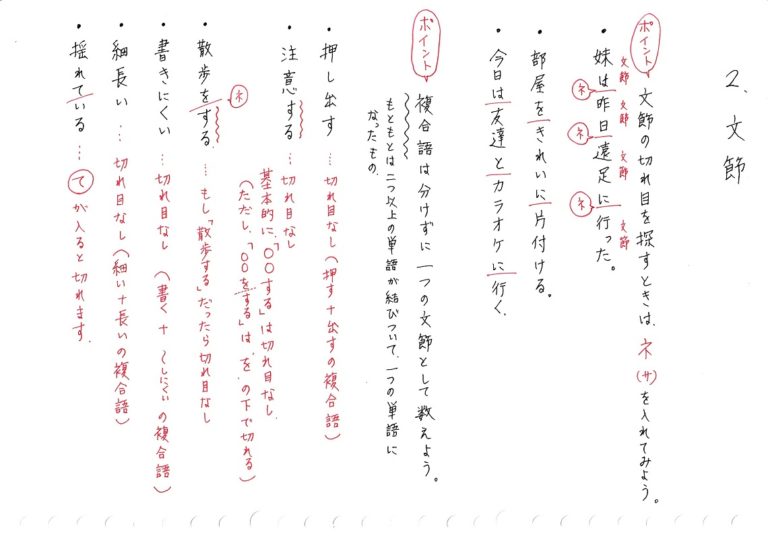 2. 文節
ポイント 文節の切れ目を探すときは、ネ(サ)を入れてみよう。
文節 文節 文節 文節
・妹は昨日遠足に行った。
ネ ネ ネ
・部屋をきれいに片付ける。
・今日は友達とカラオケに行く。
ポイント 複合語は分けずに一つの文節として数えよう。
もともとは二つ以上の単語が結びついて、一つの単語に
なったもの。
・押し出す … 切れ目なし(押す+出すの複合語)
・注意する … 切れ目なし
基本的に、「〇〇する」は切れ目なし。
(ただし、「〇〇をする」は、を、の下で切れる)
ネ
・散歩をする … もし「散歩する」だったら切れ目なし
・書きにくい … 切れ目なし (書く+〜しにくいの複合語)
・細長い … 切れ目なし(細い+長いの複合語)
・揺れている … てが入ると切れます。